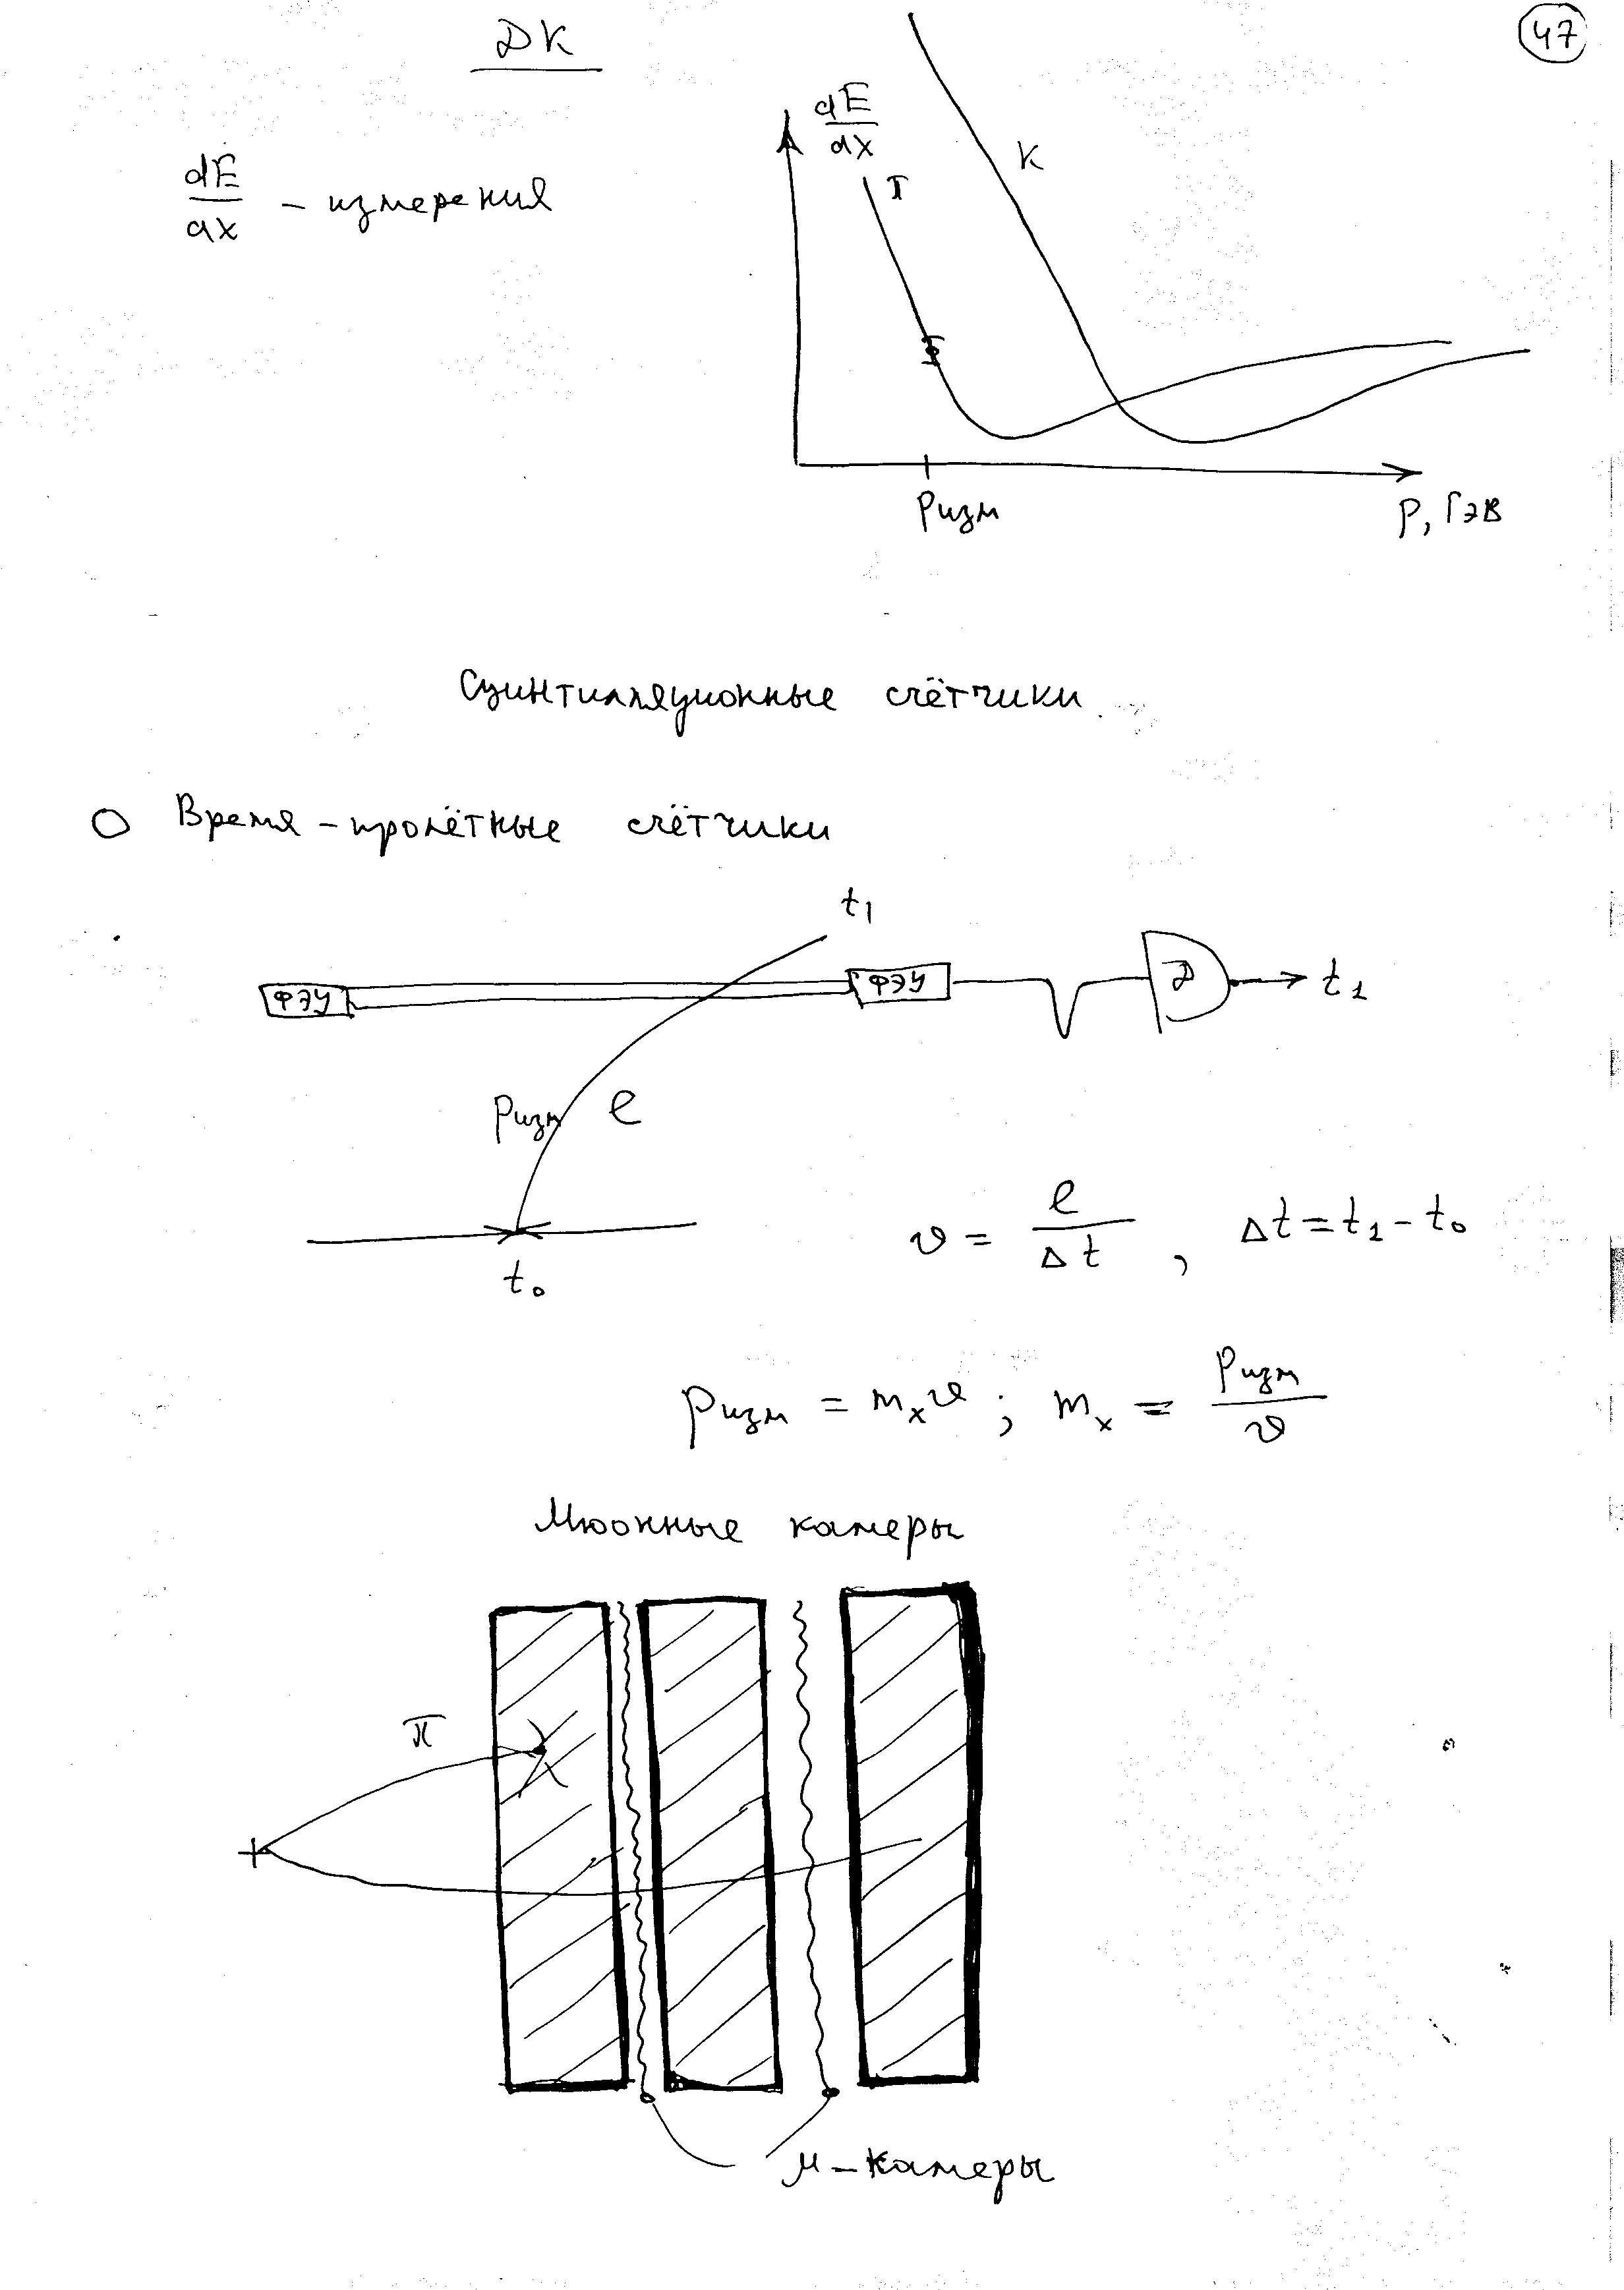 ДК
47
dE/dx – измерения
dE/dx
π
K
Pизм
P, ГэВ
Сцинтилляционные счётчики
Время – пролётные счётчики
t₁
ФЭУ
ФЭУ
Д
t₁
Pизм
ℓ
t₀
v = ℓ/Δt , Δt = t₁ – t₀
Pизм = mₓv ; mₓ = Pизм/v
Мюонные камеры
π
μ – камеры